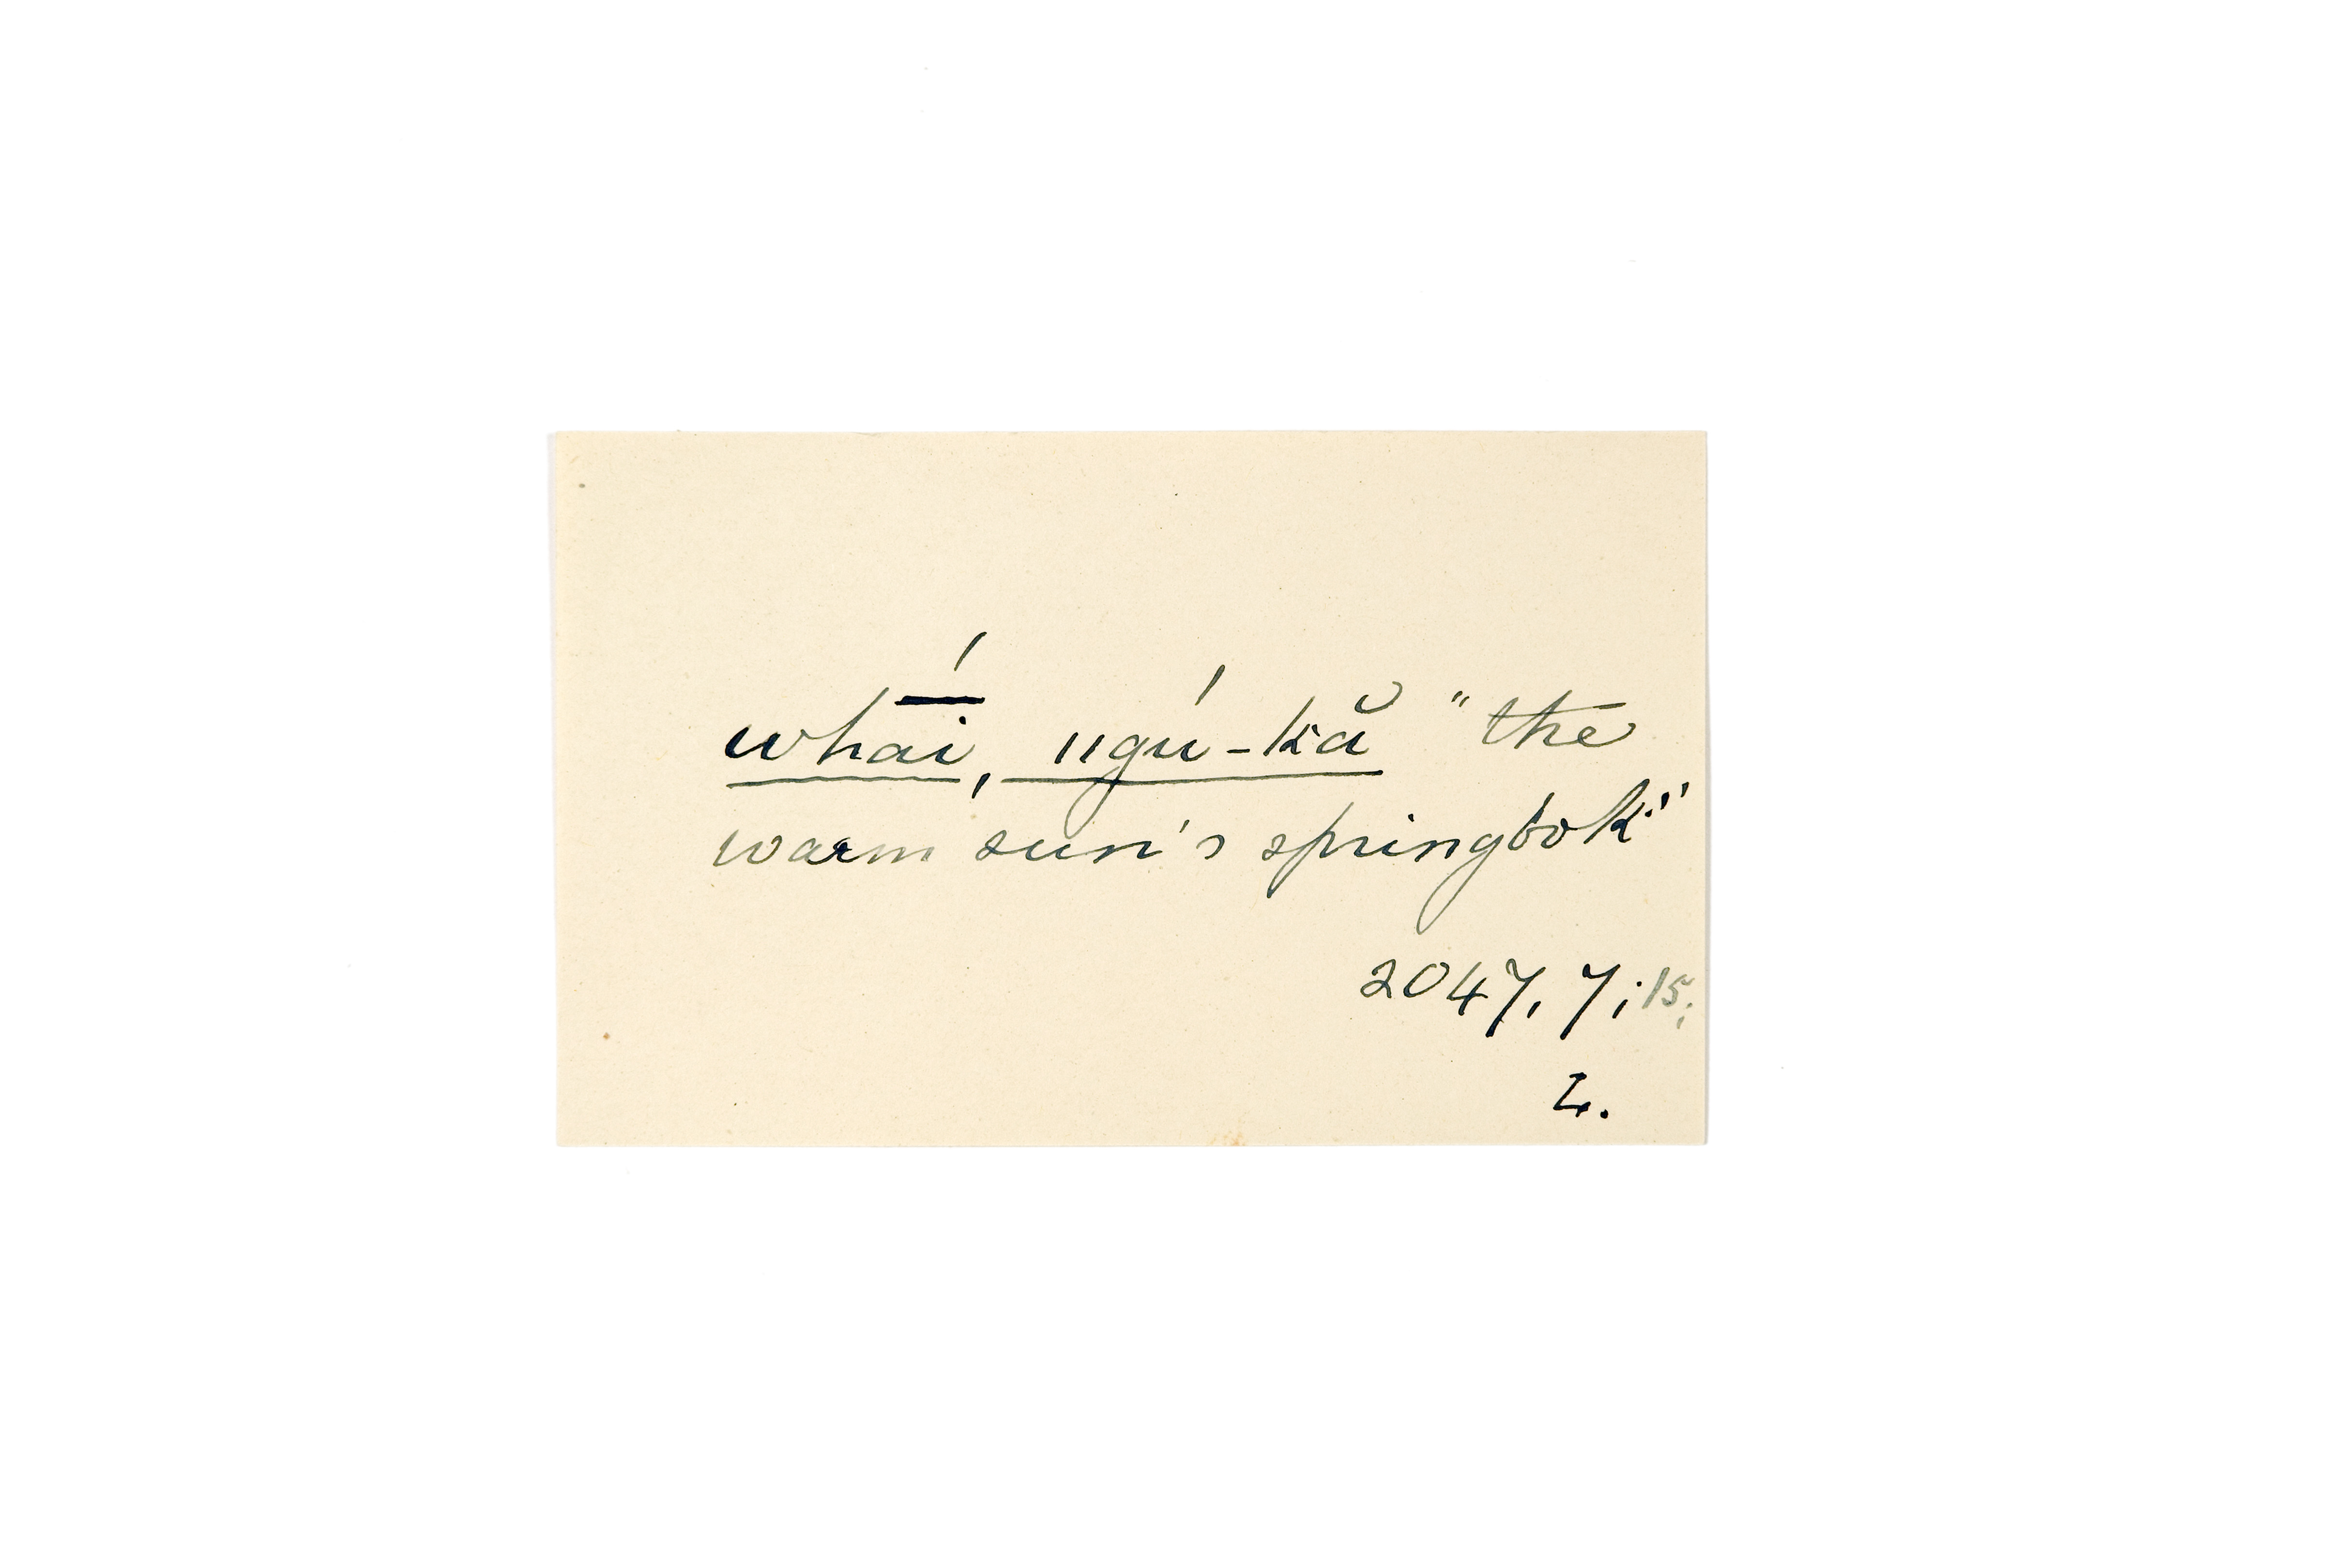 whā́i, ǁgú-kă "the
warm sun's springbok"
2047, 7; 15;
L.